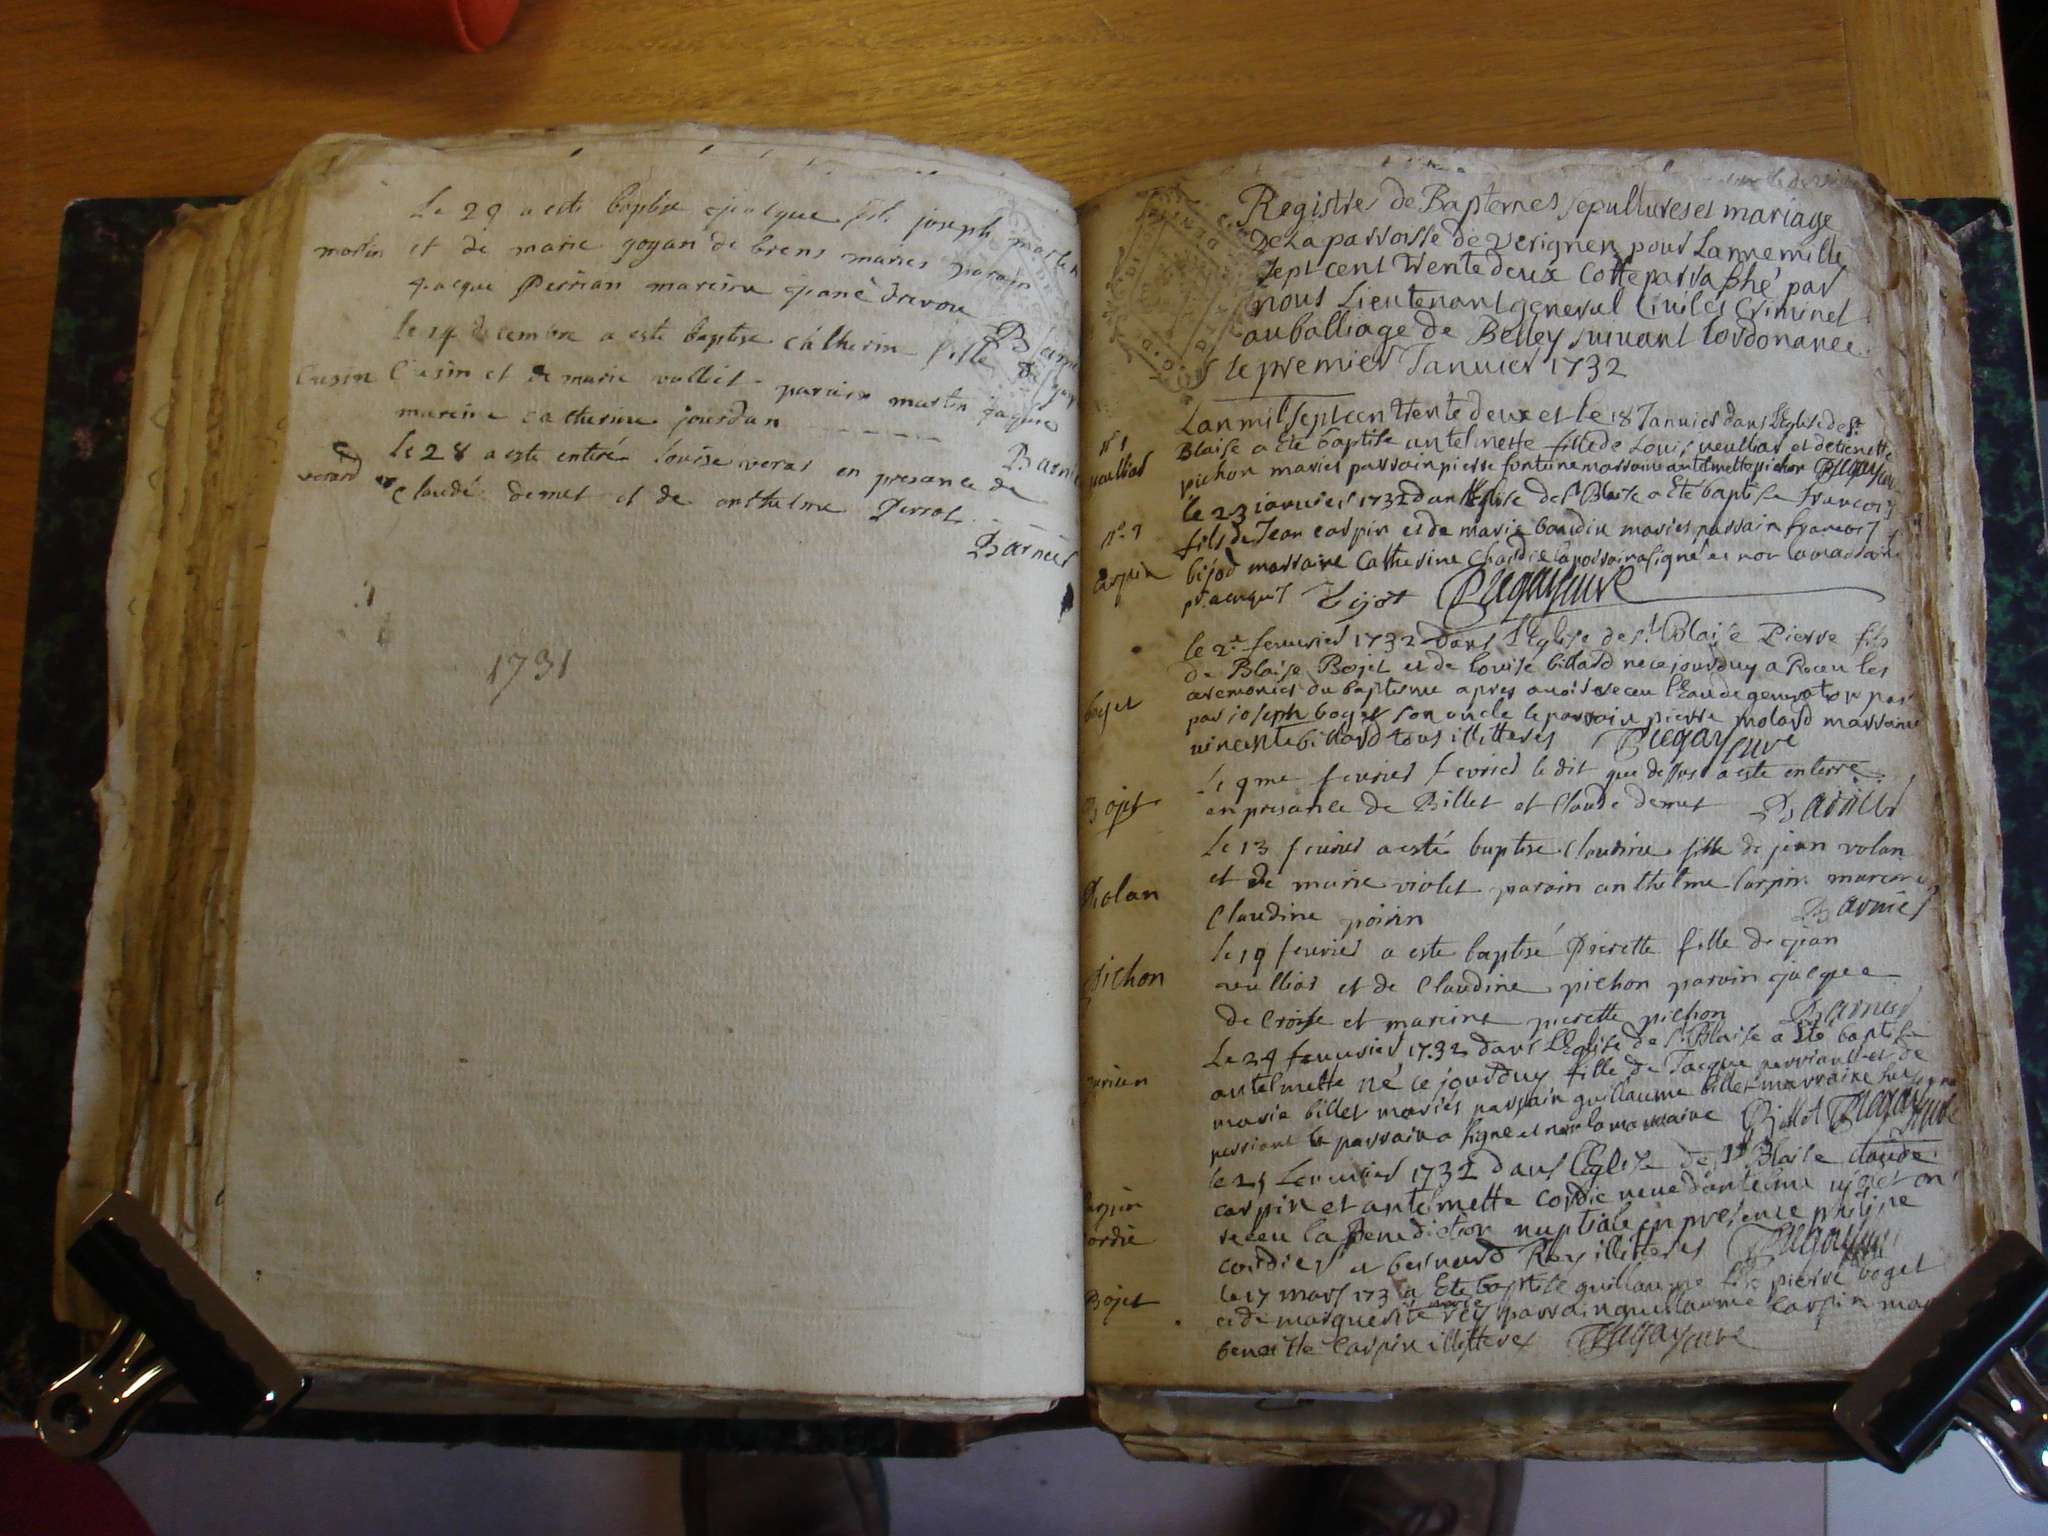 Le 29 a este baptise cjacque fils joseph martin
martin et de marie goyan de brens maries parain
Jacque Perrian mareine cjane
Barnier
le 14 decembre a este baptise catherine fille de
Cusin Cusin et de marie vulliet parain martin
mareine catherine jourdan
Barnier
verard Le 28 a este enteré louise veras en presance de
Claude demet et de anthelme Perrot
Barnier
1731
Registre de Baptemes sepultures et mariage
De La parroisse de Verignen pour Lanne mille
sept cent trente deux cotte parraphé par
nous Lieutenant general Civil et Criminel
au balliage de Belley suivant lordonance
le premier Janvier 1732
Lan mil sept cen trente deux et le 18 Janvier dans l'Eglise de st
n° 1 Blaise a Ete baptise antelmette fille de Louis veullias et detienette
veullias pichon maries parrain pierre fontaine marraine antelmette pichon
le 23 janvier 1732 dans l'Eglise de st Blaise a Ete baptise francois
n° 2 fils de Jean carpin et de marie baudin maries parrain francois
carpin bijod marraine Catherine le parrain a signé et non la marraine
Bijot
le 2e fevrier 1732 dans l'Eglise de st Blaise Pierre fils
de Blaise Bojet et de louise billard ne ce jourduy a Receu les
boget ceremonies du baptesme apres avoir receu l'Eau de
par joseph boget son oncle le parrain pierre molard marraine
vincente billard tous illitteres
Le 9me fevrier fevrier le dit que dessus a este enterre
Bojet en presance de Billet et Claude demet Barnier
Le 13 fevrier a esté baptise Claudine fille de jean volan
Volan et de marie violet parain anthelme Carpin mareine
Claudine poirin Barnier
le 19 fevrier a este baptisé Pierette fille de cjean
Pichon veullias et de Claudine pichon parain cjacque
de Croise et mareine pierette pichon Barnier
Le 24 fevrier 1732 dans l'Eglise de st Blaise a Eté baptise
antelmette né ce jourduy fille de Jacque perriant et de
marie billet maries parrain guillaume billet marraine
perriant le parrain a signe et non la marraine Billet
le 25 fevrier 1732 dans l'Eglise de st Blaise claude
carpin carpin et antelmette cordie veuve dantelme ont
cordie receu la benediction nuptiale en presence philipe
cordier et bernard Rey illitteres
le 17 mars 173 a Ete baptise guillaume fils pierre boget
Bojet et de marguerite rey maries parrain guillaume Carpin
benoitte Carpin illitteres